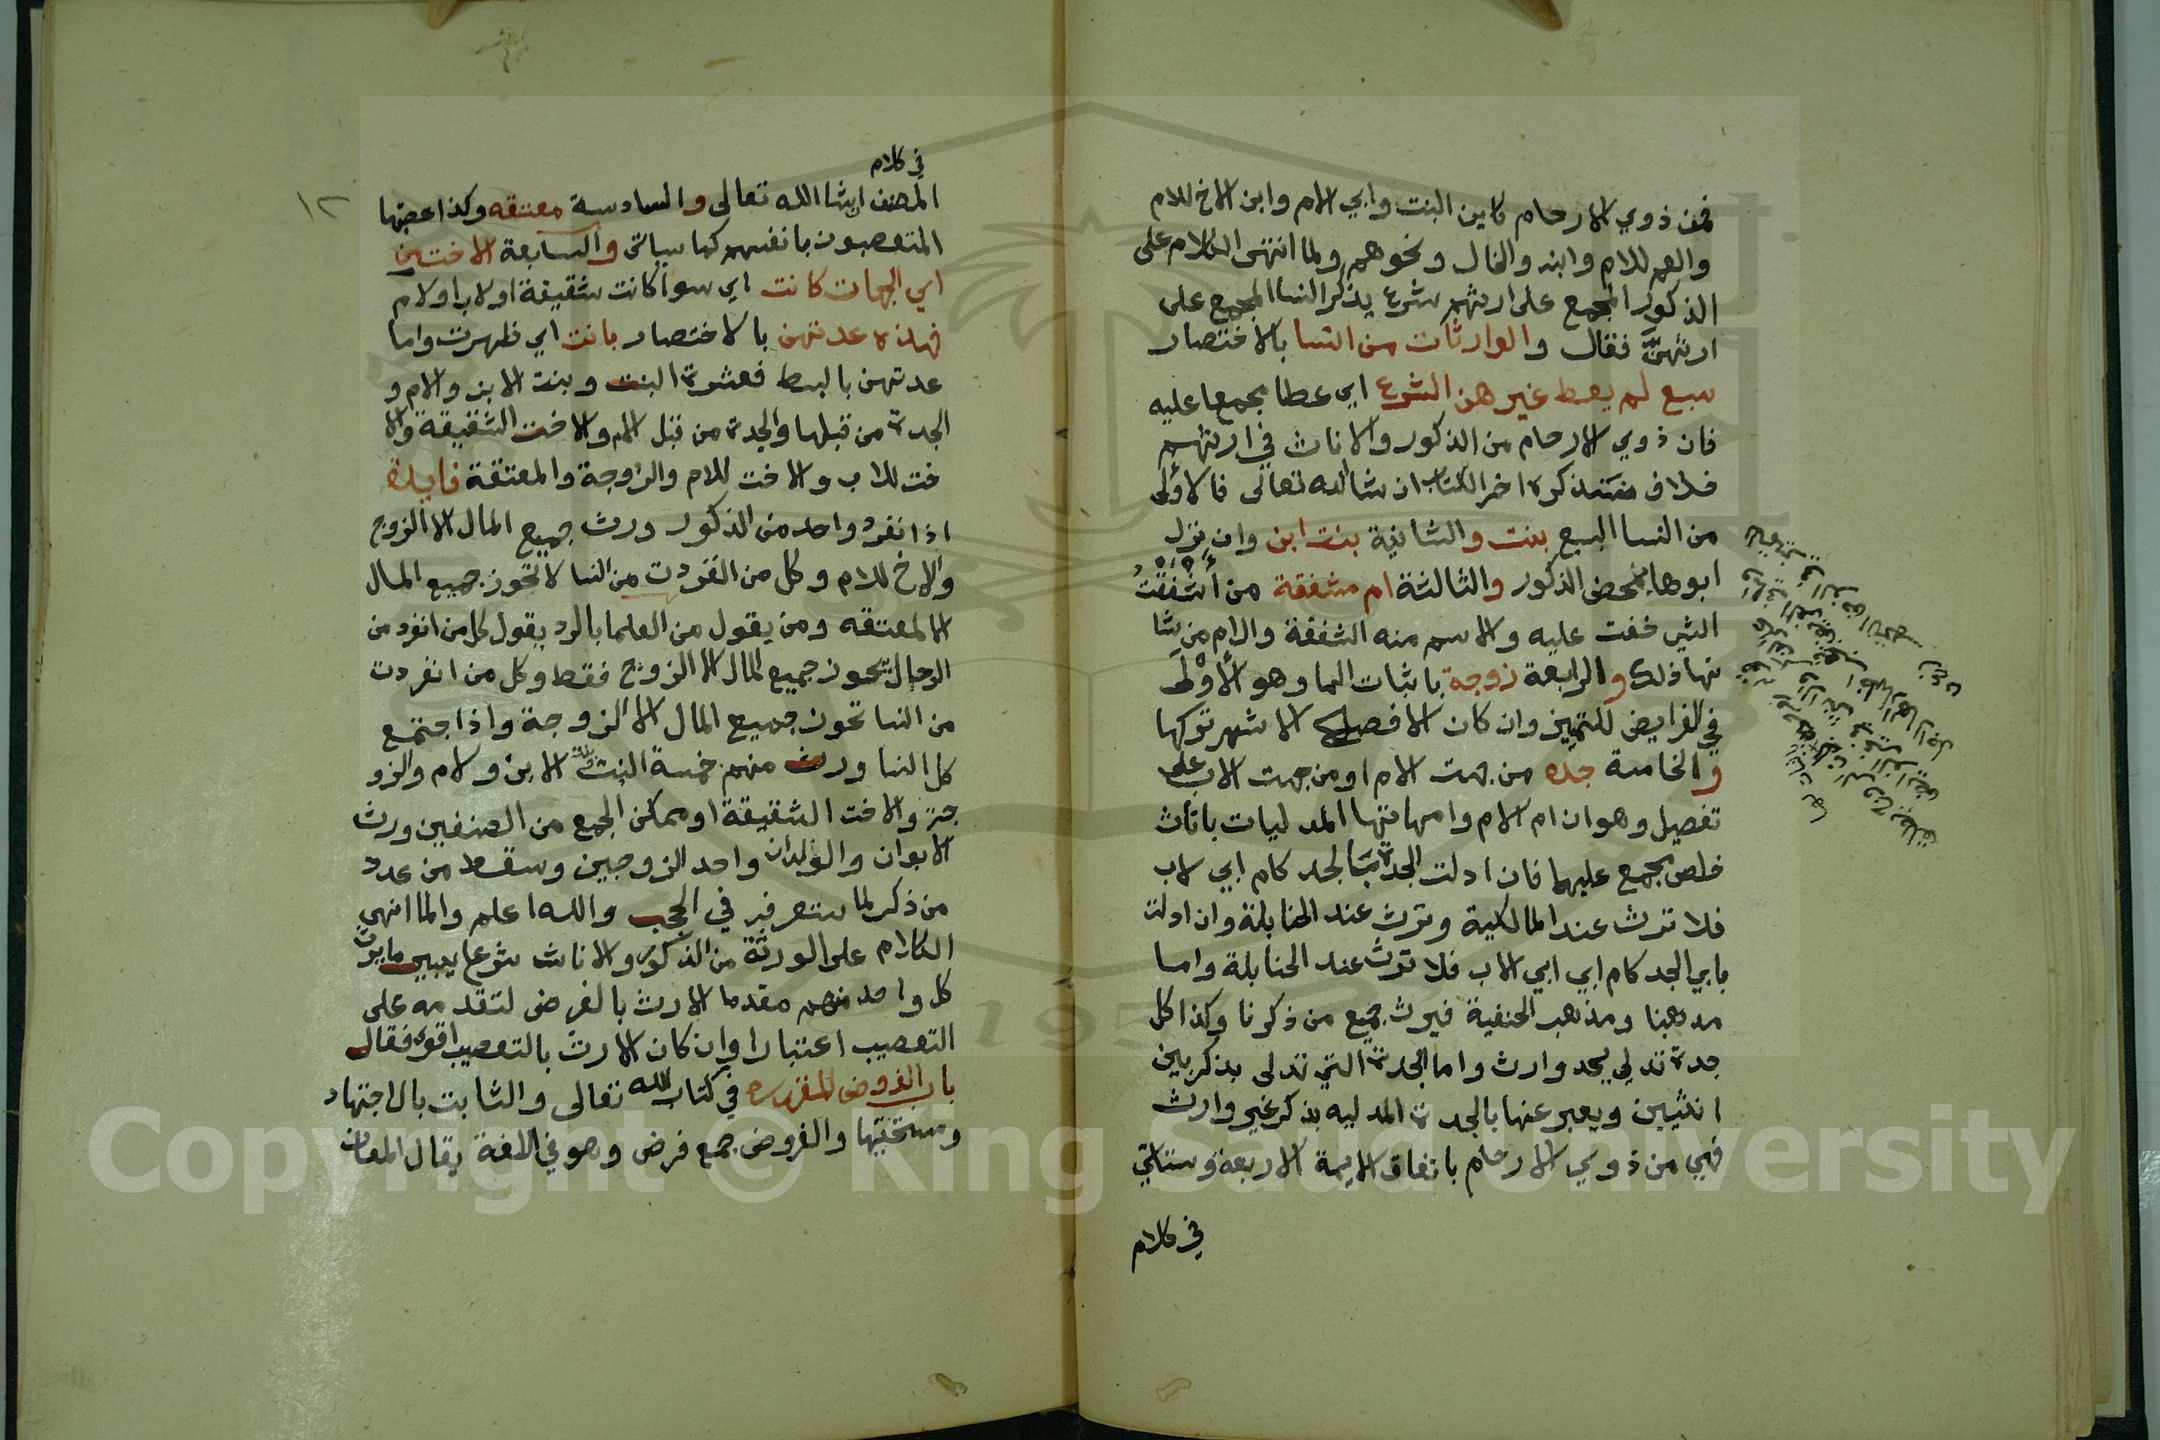 فمن ذوي الارحام كابن البنت وابي الام وابن الاخ للام
والعم للام وابنه والخال ونحوهم ولما انتهى الكلام على
الذكور المجمع على ارثهم شرع يذكر النسا المجمع على
ارثهنَّ فقال والوارثات من النسا بالاختصار
سبع لم يعط غيرهن الشرع اي عطا مجمعا عليه
فان ذوي الارحام من الذكور والاناث في ارثهم
خلاف سنذكره اخر الكتاب ان شا الله تعالى فالاولى
من النسا السبع بنت والثانية بنت ابن وان نزل
ابوها بمحض الذكور والثالثة ام مشفقة من أَشْفَقْتُ
الشي خفت عليه والاسم منه الشفقة والام من شا
نها ذلك والرابعة زوجة باثبات الها وهو الأَوْلَى
في الفرايض للتميز وان كان الافصح الاشهر تركها
والخامسة جده من جهت الام او من جهت الاب على
تفصيل وهو ان ام الام وامهاتها المدليات باناث
خلص مجمع عليها فان ادلت الجدة بالجد كام ابي لاب
فلا ترث عند المالكية وترث عند الحنابلة وان ادلت
بابي الجد كام ابي ابي الاب فلا ترث عند الحنابلة واما
مدهبنا ومذهب الحنفية فيرث جميع من ذكرنا وكذا كل
جدة تدلي بجد وارث واما الجدة التي تدلى بذكر بين
انثيين ويعبر عنها بالجدة المدليه بذكر غير وارث
فهي من ذوي الارحام باتفاق الايمة الاربعة وستاتي
في كلام
١٢
في كلام
المصنف انشا الله تعالى والسادسة معتقه وكذا عصبتها
المتعصبون بانفسهم كما سياتي والسابعة الاخت من
اي الجهات كانت اي سوا كانت شقيقة او لاب او لام
فهذه عدتهن بالاختصار بانت اي ظهرت واما
عدتهن بالبسط فعشرة البنت وبنت الابن والام و
الجدة من قبلها والجدة من قبل الام والاخت الشقيقة والا
خت للاب والاخت للام والزوجة والمعتقة فايدة
اذا نفرد واحد من الذكور ورث جميع المال الا الزوج
والاخ للام وكل من انفردت من النسا لا تحوز جميع المال
الا المعتقه ومن يقول من العلما بالرد يقول كل من انفرد من
الرجال يحوز جميع المال الا الزوج فقط وكل من انفردت
من النسا تحوز جميع المال الا الزوجة واذا جتمع
كل النسا ورث منهم خمسة البنت الابن ولام والزو
جة والاخت الشقيقة او ممكن الجمع من الصنفين ورث
الابوان والولدان واحد الزوجين وسقط من عدد
من ذكر لما ستعرفه في الحجب والله اعلم والما انهى
الكلام على الورثة من الذكور والاناث شرع يبين ما يرث
كل واحد منهم مقدما الارث بالفرض لتقدمه على
التعصيب اعتبارا وان كان الارث بالتعصيب اقوه فقال
باب الفروض المقرره في كتاب الله تعالى والثابت بالاجتهاد
ومستحقيها والفروض جمع فرض وهو في اللغة يقال المعان
Copyright © King Saud University